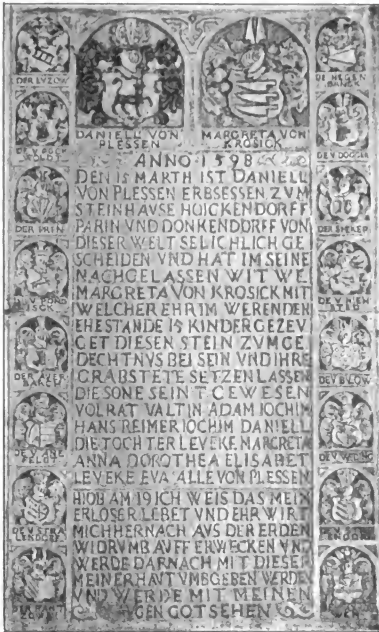 DER LVZOW
DE HEGEN
DANIELL VON
PLESSEN
MARGRETA VON
KROSICK
ANNO 1598
DEN 15 MARTH IST DANIELL
VON PLESSEN ERBSESSEN ZVM
STEINHAVSE HOICKENDORFF
PARIN VND DONKENDORFF VON
DIESER WELT SELICHLICH GE
SCHEIDEN VND HAT IM SEINE
NACHGELASSEN WITWE
MARGRETA VON KROSICK MIT
WELCHER EHR IM WERENDEN
EHESTANDE 15 KINDER GEZEV
GET DIESEN STEIN ZVM GE
DECHTNVS BEI SEIN VND IHRE
GRABSTETE SETZEN LASSEN
DIE SONE SEINT GEWESEN
VOLRAT VALTIN ADAM IOCHIM
HANS REIMER IOCHIM DANIELL
DIE TOCHTER LEVEKE MARGRETA
ANNA DOROTHEA ELISABET
LEVEKE EVA ALLE VON PLESSEN
HIOB AM 19 ICH WEIS DAS MEIN
ERLOSER LEBET VND EHR WIRT
MICH HERNACH AVS DER ERDEN
WIDRVMB AVFF ERWECKEN VND
WERDE DARNACH MIT DIESER
MEINER HAVT VMBGEBEN WERDE
VND WERDE MIT MEINEN
GEN GOT SEHEN
DE V BVLOW
DE V STRA
LENDORF